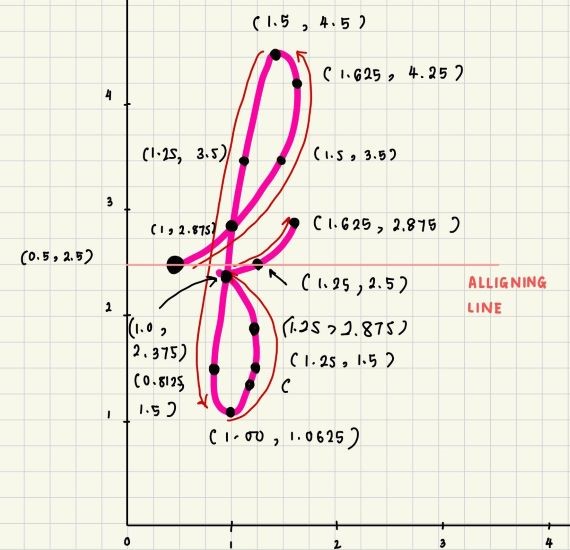 (1.5 , 4.5)
(1.625, 4.25)
4
(1.25, 3.5)
(1.5, 3.5)
3
(1, 2.875)
(1.625, 2.875 )
(0.5, 2.5)
(1.25, 2.5)
ALLIGNING
LINE
2
(1.0 ,
2.375)
(1.25, 1.875)
(1.25, 1.5)
(0.8125
1.5 )
C
1
(1.00 , 1.0625)
0
1
2
3
4